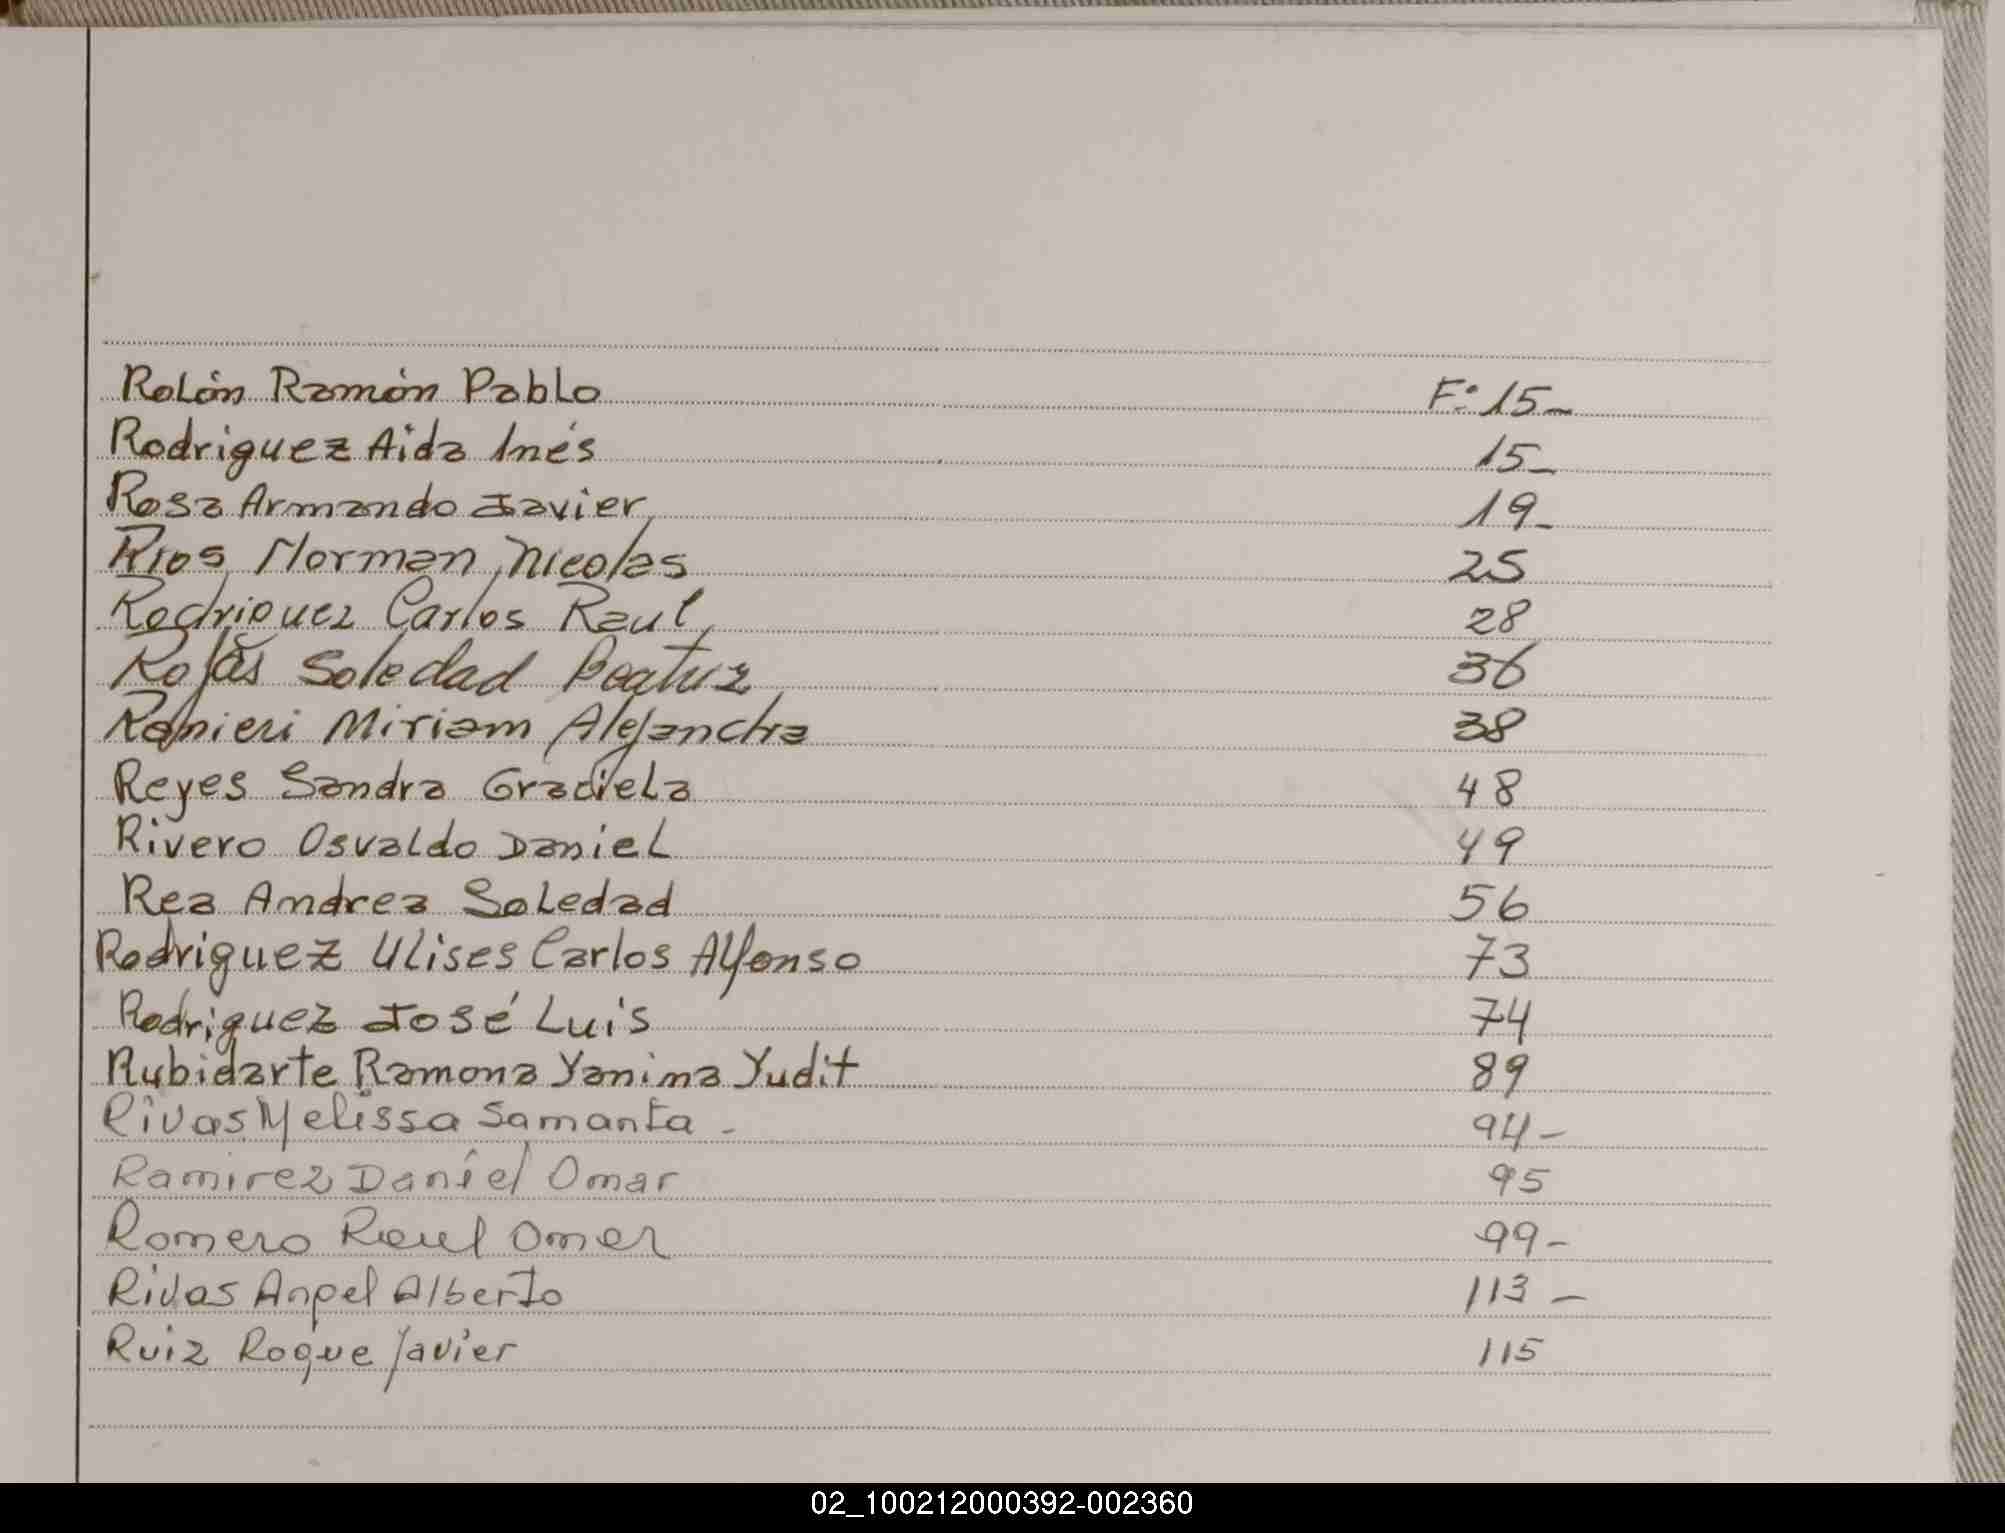 Rolón Ramón Pablo F: 15-
Rodriguez Aida Inés 15-
Rosa Armando Javier 19-
Rios Norman Nicolas 25
Rodriguez Carlos Raul 28
Rojas Soledad Beatriz 36
Ranieri Miriam Alejandra 38
Reyes Sandra Graciela 48
Rivero Osvaldo Daniel 49
Rea Andrea Soledad 56
Rodriguez Ulises Carlos Alfonso 73
Rodriguez José Luis 74
Rubidarte Ramona Yanina Yudit 89
Rivas Melissa Samanta - 94-
Ramirez Daniel Omar 95
Romero Raul Omar 99-
Rivas Angel Alberto 113-
Ruiz Roque Javier 115
02_100212000392-002360